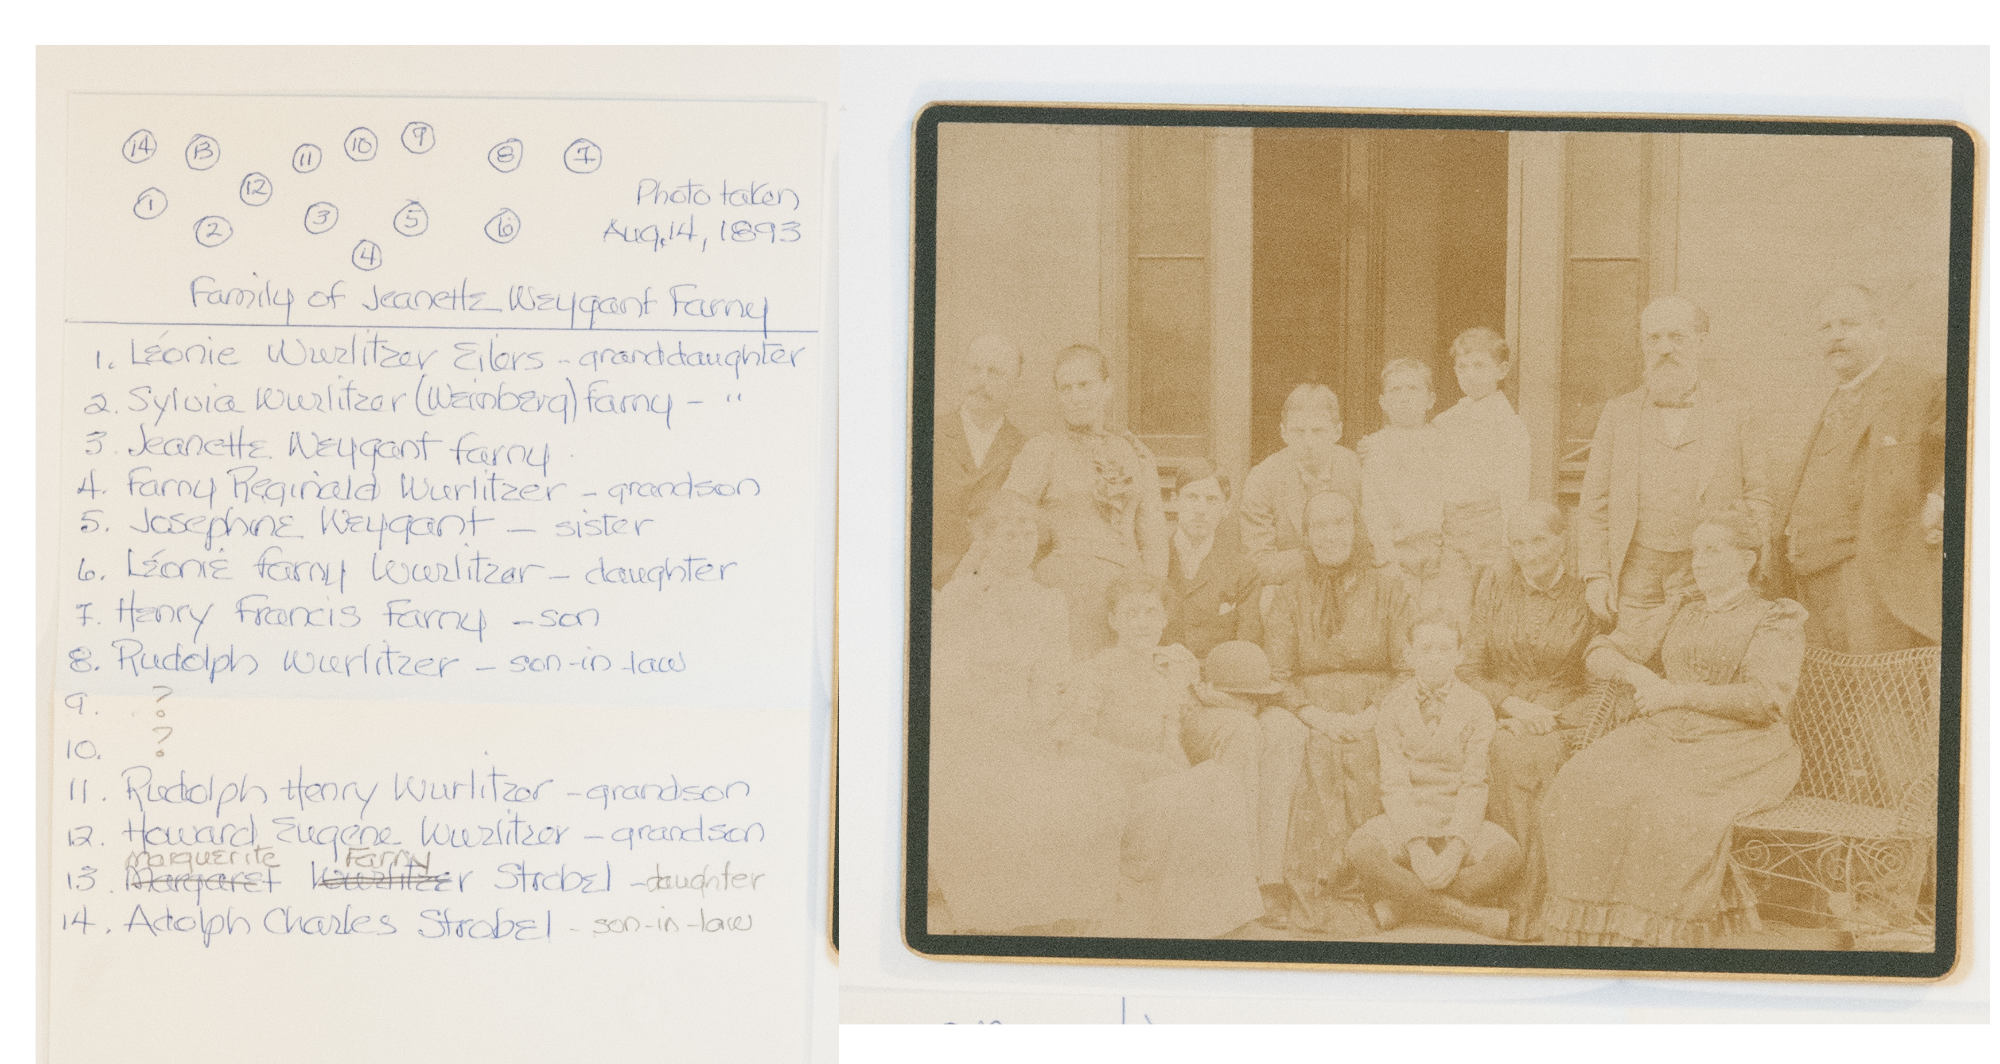 14 13 11 10 9 8 7
12
1 2 3 5 6
4
Photo taken
Aug. 14, 1893
Family of Jeanette Weygant Farny
1. Léonie Wurlitzer Eilers - granddaughter
2. Sylvia Wurlitzer (Weinberg) Farny - "
3. Jeanette Weygant Farny
4. Farny Reginald Wurlitzer - grandson
5. Josephine Weygant - sister
6. Léonie Farny Wurlitzer - daughter
7. Henry Francis Farny - son
8. Rudolph Wurlitzer - son-in-law
9. ?
10. ?
11. Rudolph Henry Wurlitzer - grandson
12. Howard Eugene Wurlitzer - grandson
Marguerite Farny
13 Margaret Wurlitzer Strobel - daughter
14. Adolph Charles Strobel - son-in-law